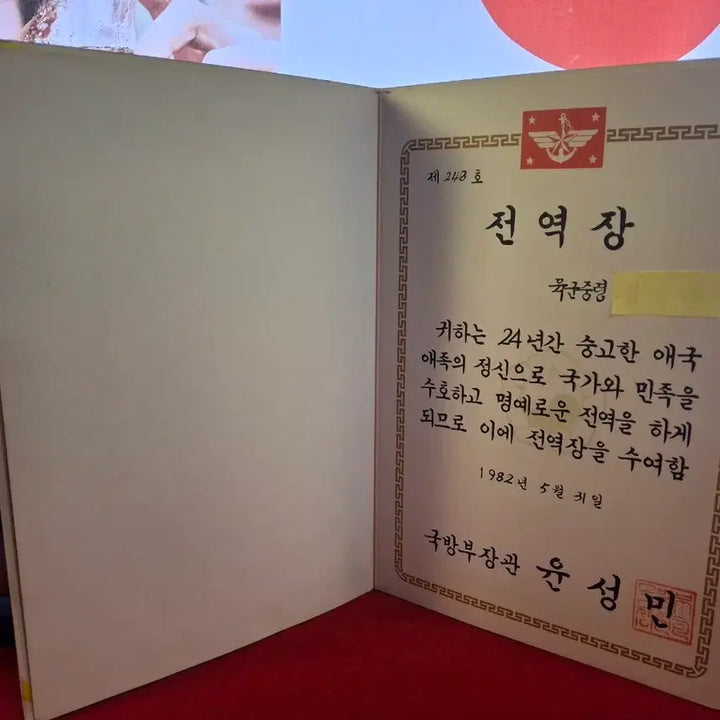 제 248 호
전역장
육군중령
귀하는 24년간 숭고한 애국
애족의 정신으로 국가와 민족을
수호하고 명예로운 전역을 하게
되므로 이에 전역장을 수여함
1982년 5월 31일
국방부장관 윤성민